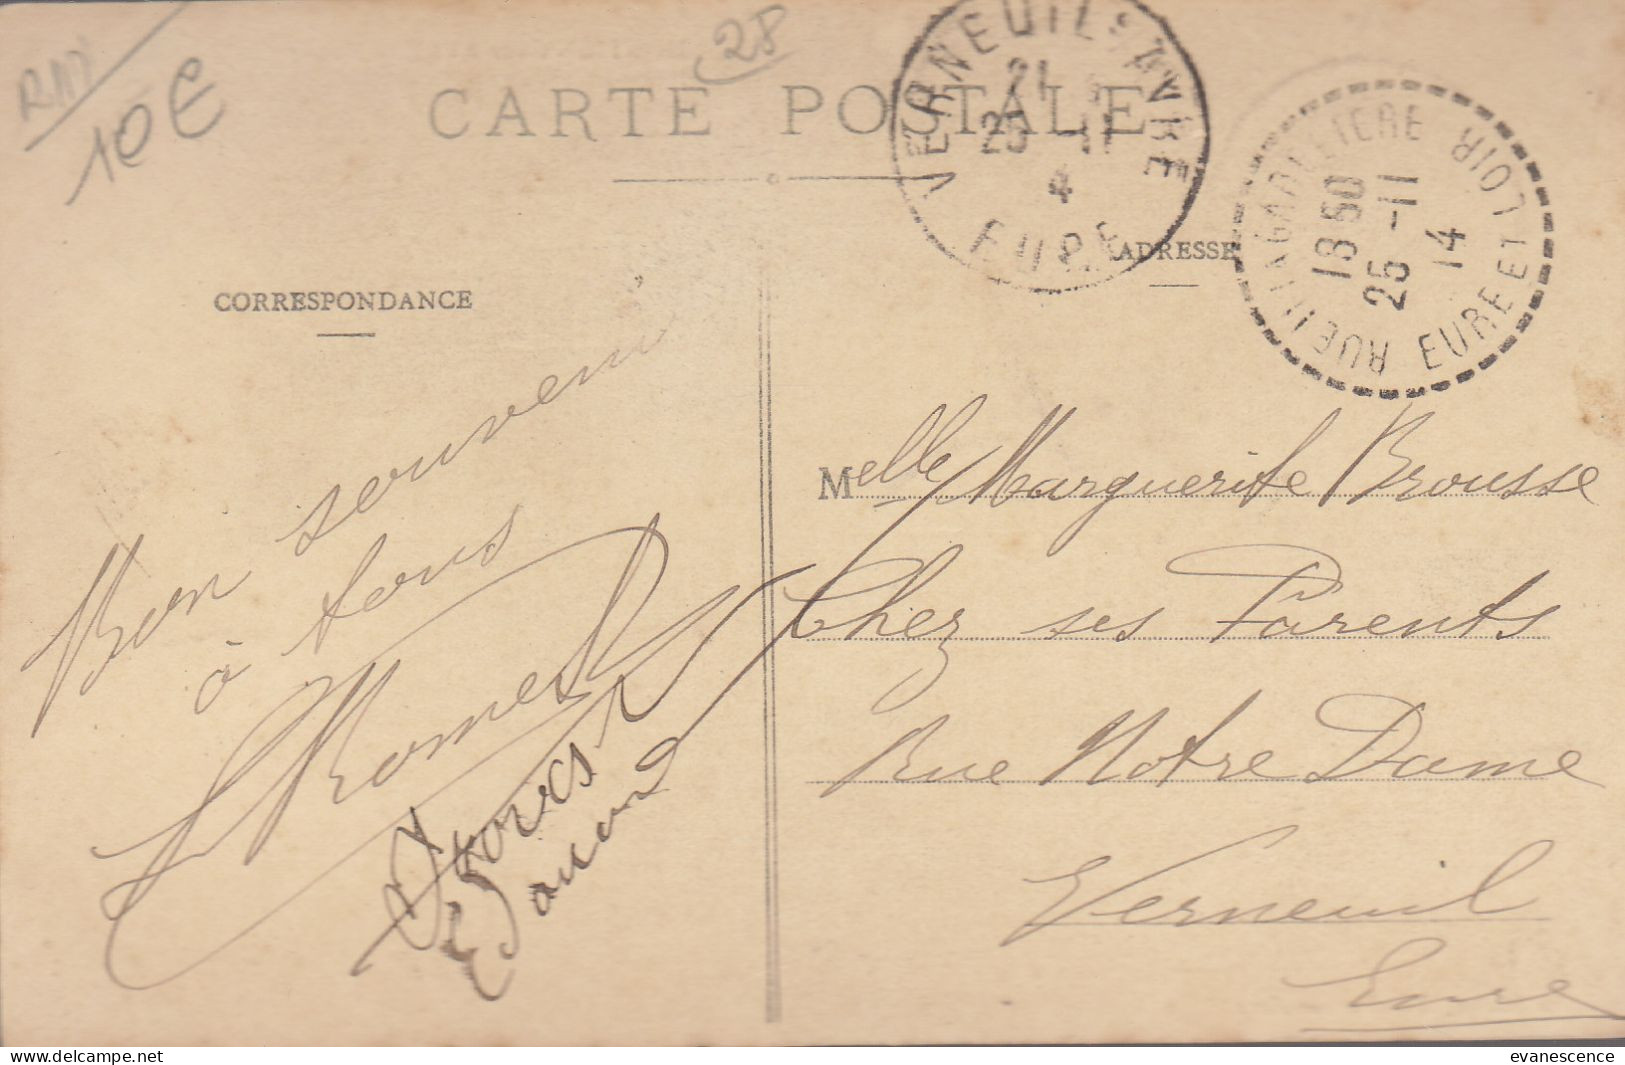 28
10€
CARTE POSTALE
VERNEUIL S AVRE
21
25 -11
EURE
RUEIL LA GADELIERE EURE ET LOIR
18 50
25 -11
14
CORRESPONDANCE
ADRESSE
Bon souvenir
à tous
Melle Marguerite Brousse
Chez ses Parents
Rue Notre Dame
Verneuil
Eure
evanescence